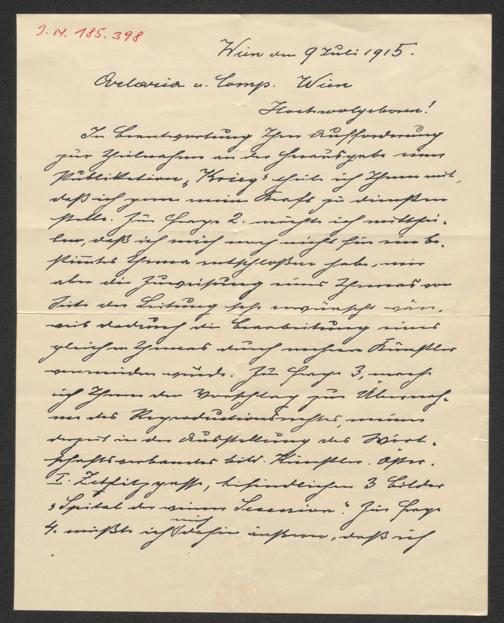 J.N. 185.398
Wien den 9 Juli 1915.
Artaria u. Comp. Wien
Hochwolgeboren!
In Beantwortung Ihrer Aufforderung
zur Theilnahme an der Herausgabe einer
Publikation „Krieg" theile ich Ihnen mit,
daß ich gern meine Kraft zu diensten
stelle. Zur Frage 2. möchte ich mitthei-
len, daß ich mich noch nicht für ein be-
stimtes Thema entschloßen habe, mir
aber die Zuweisung eines Themas von
Seite der Leitung sehr erwünscht wäre,
weil dadurch die Bearbeitung eines
gleichen Themas durch mehrere Künstler
vermieden würde. Zu Frage 3, mache
ich Ihnen den Vorschlag zur Übernah-
me des Reproductionsrechtes, meiner
derzeit in der Ausstellung des Wirt-
schaftsverbandes bild. Künstler. Öster.
I. Zedlitzgasse, befindlichen 3 Bilder
„Spital der wiener Secession". Zur Frage
4. müßte ich mich dahin äußern, daß ich